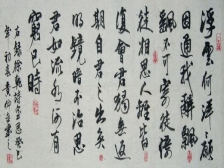 浮雲何洋洋願
因通我辭飄
飖不可寄徙倚
徒相思人離皆
復會君獨無返
期自君之出矣
明鏡暗不治思
君如流水何有
窮已時